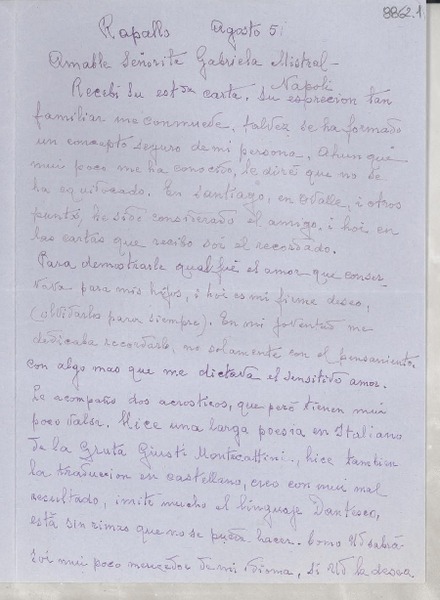 9862.1
Rapallo Agosto 5
Amable Señorita Gabriela Mistral -
Napoli
Recebi su estda carta. Su esprecion tan
familiar me conmuede, talvez se ha formado
un concepto seguro de mi persona, ahun que
mui poco me ha conocido, le diré que no se
ha equivocado. En Santiago, en Ovalle, i otros
puntos, he sido considerado el amigo, i hoi en
las cartas que recibo soi el recordado.
Para demostrarle qual fué el amor que conser-
vava para mis hijos, i hoi es mi firme deseo,
(olvidarlo para siempre). En mi joventud me
dedicaba recordarlo, no solamente con el pensamiento,
con algo mas que me dictava el sensitivo amor.
Le acompaño dos acrosticos, que peró tienen mui
poco valor. Hice una larga poesia en Italiano
de la Gruta Giusti Montecattini, hice tambien
la traduccion en castellano, creo con mui mal
resultado, imité mucho el linguaje Dantesco,
está sin rimas que no se puede hacer. Como Ud sabrá
soi mui poco de mi idioma, si Ud la desea